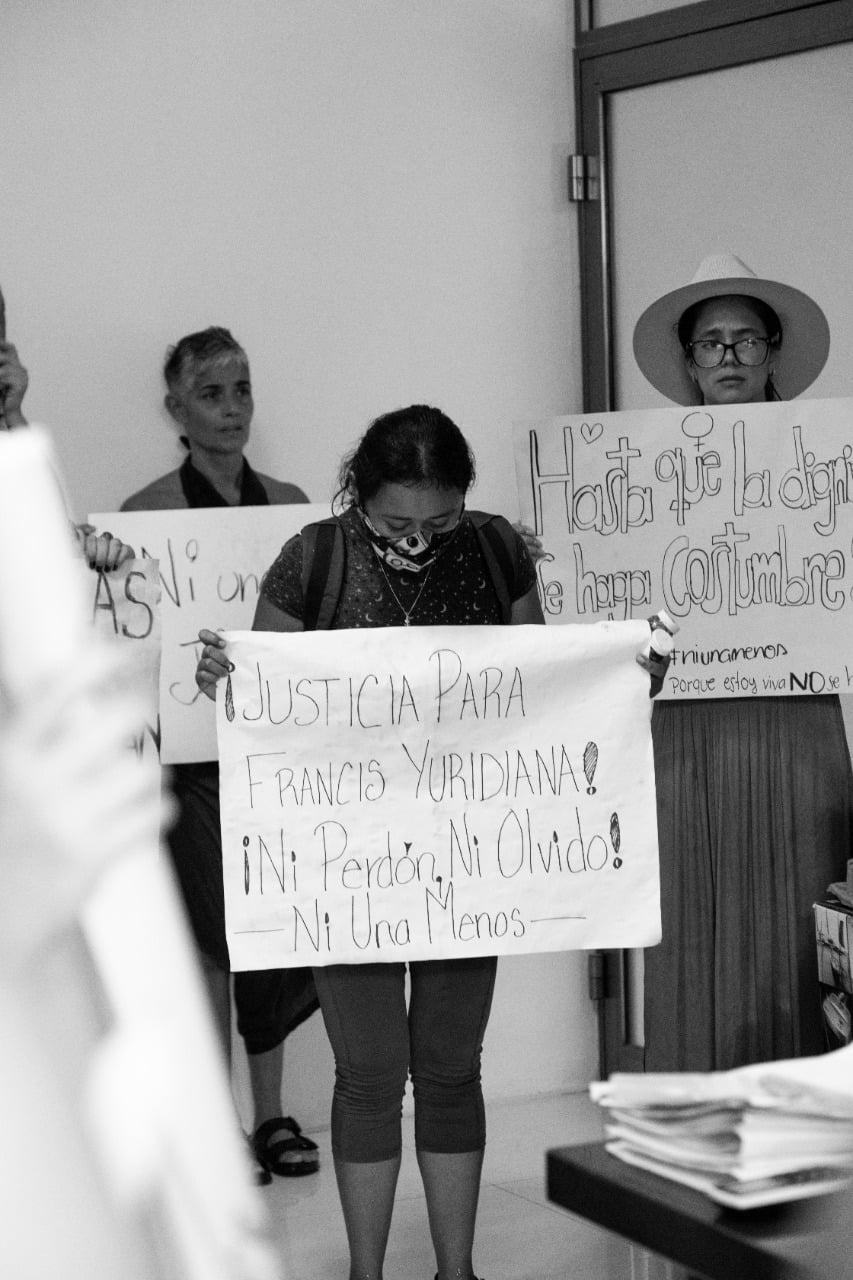 ¡JUSTICIA PARA
FRANCIS YURIDIANA!
¡Ni Perdón, Ni Olvido!
— Ni Una Menos —
Hasta que la digni
Se haga costumbre
#niunamenos
Porque estoy viva NO se h
Ni un
AS